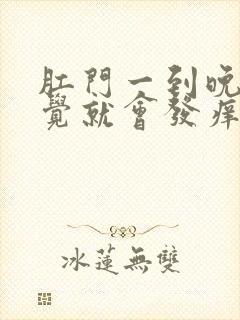 肛門一到晚
覺就會發癢
冰蓮無雙